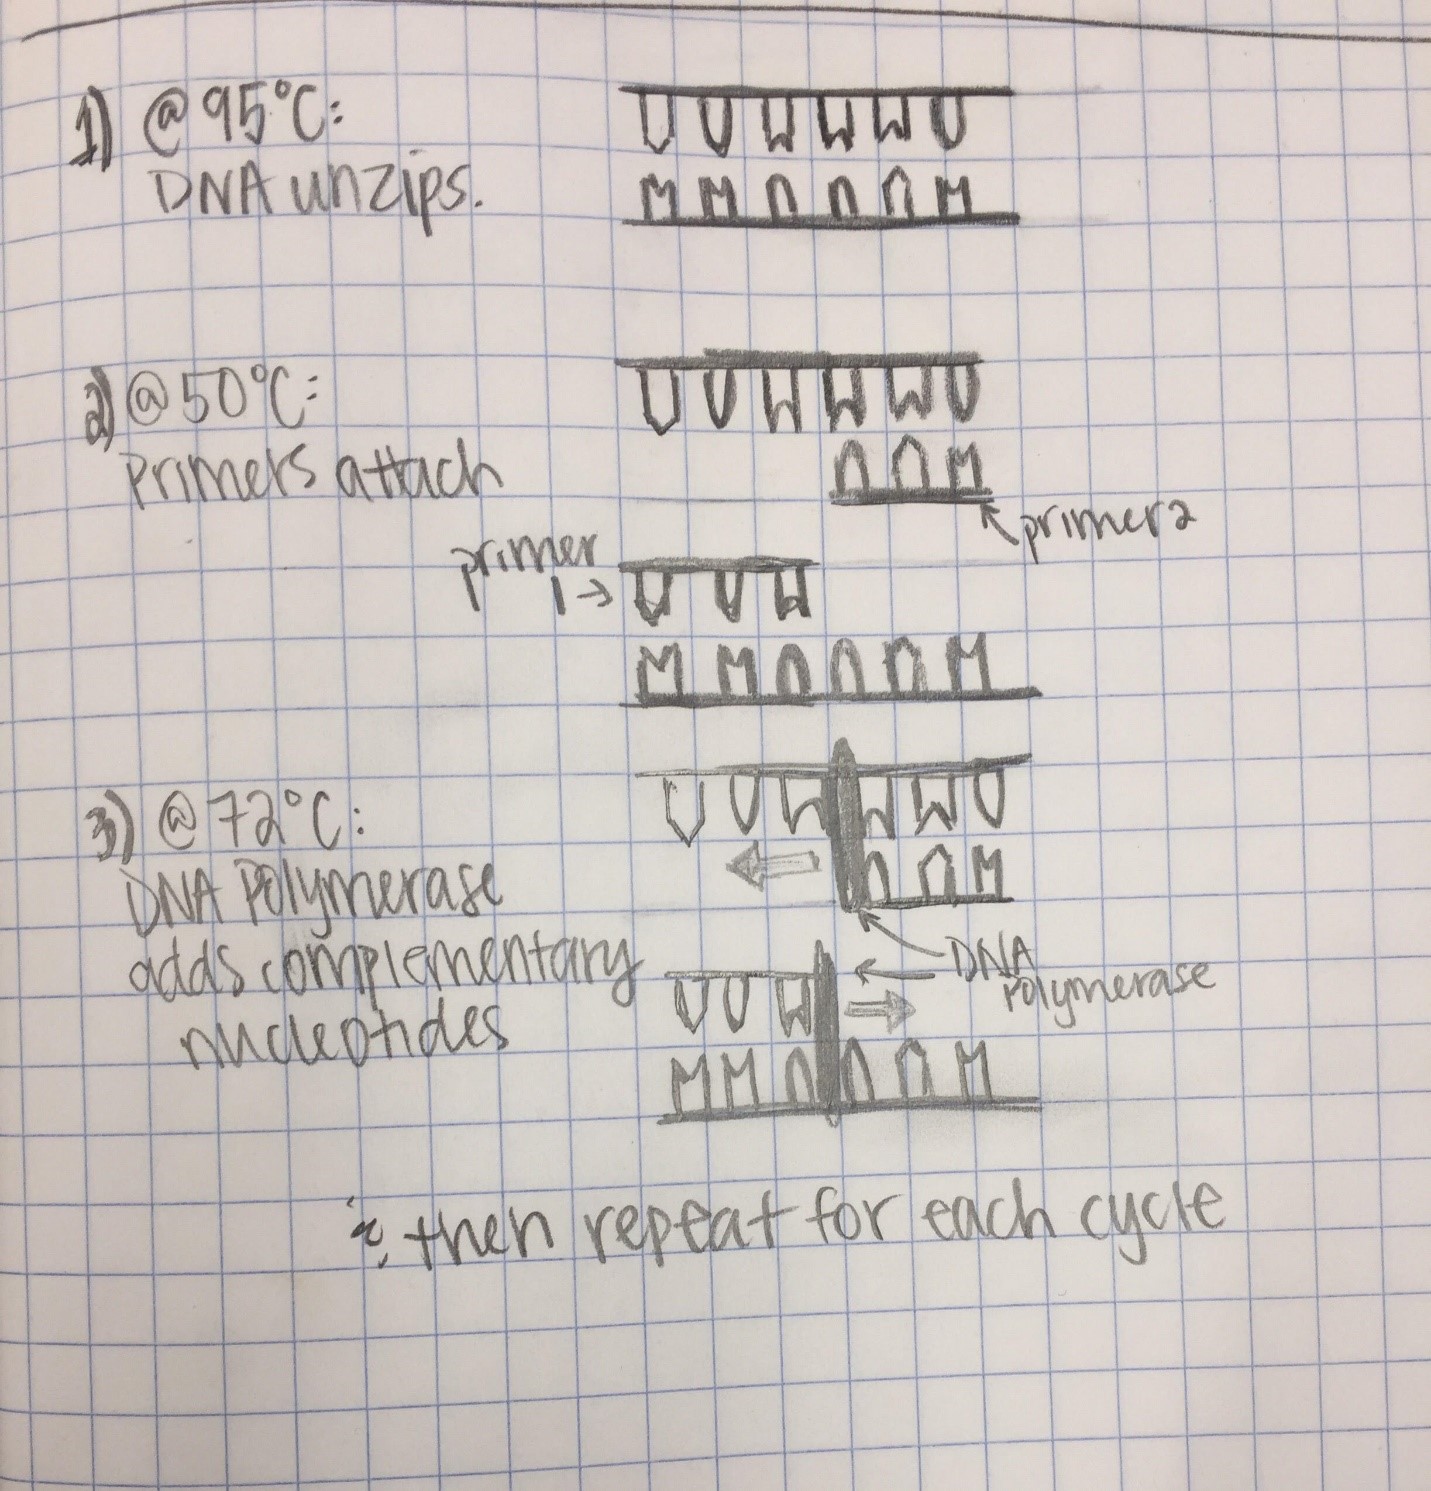 1) @ 95°C:
DNA unzips.
2) @ 50°C:
Primers attach
primer 2
primer
1
3) @ 72°C:
DNA Polymerase
adds complementary
nucleotides
DNA
Polymerase
then repeat for each cycle